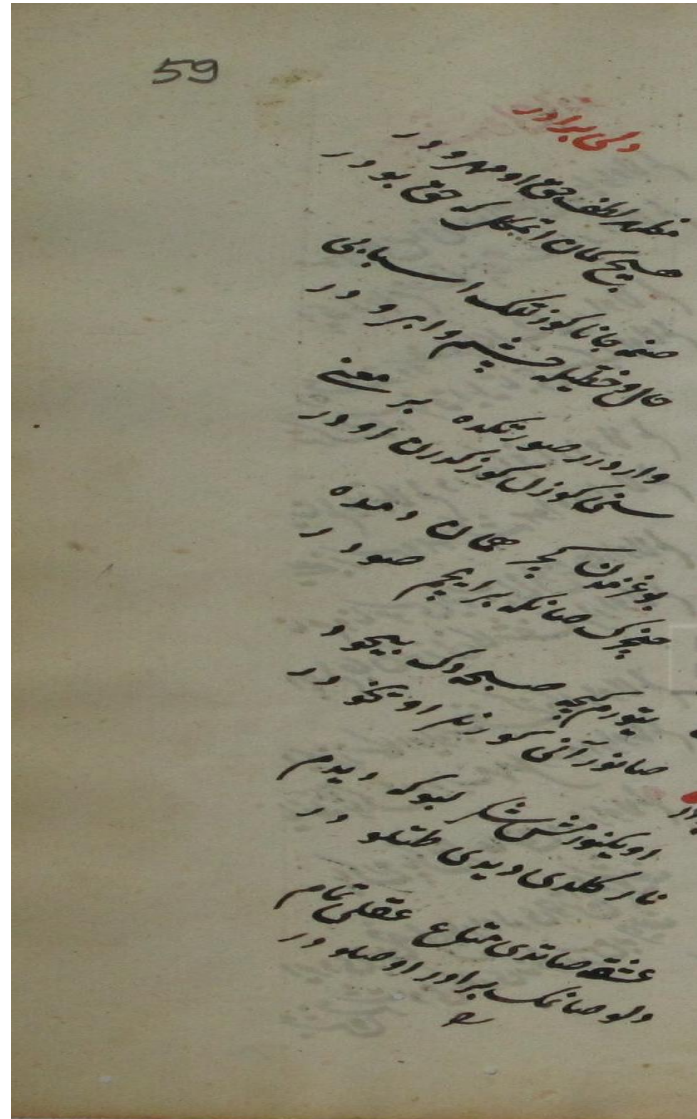 59
دلی برادر
مظهر لطف حق او مهرو در
هیچ کمان اتمکل که حق بودر
صنم جانا کوزلک اسبابی
خال و خطیله چشم و ابرو در
واردر صورتکده بر معنی
سنی کوزل کوزکورن او در
بوغزمدن کچر همان دمده
خنجرک صانکه برایچم صودر
یتورم کیجه صبحه دک بیخود
صانور آنی کورنلر اویخو در
اویکنورمش شکر لبوکه دیدم
نار کلدی دیدی طتلو در
عشقه صاتدی متاع عقلی تمام
دلو صانمک برادر اوصلو در